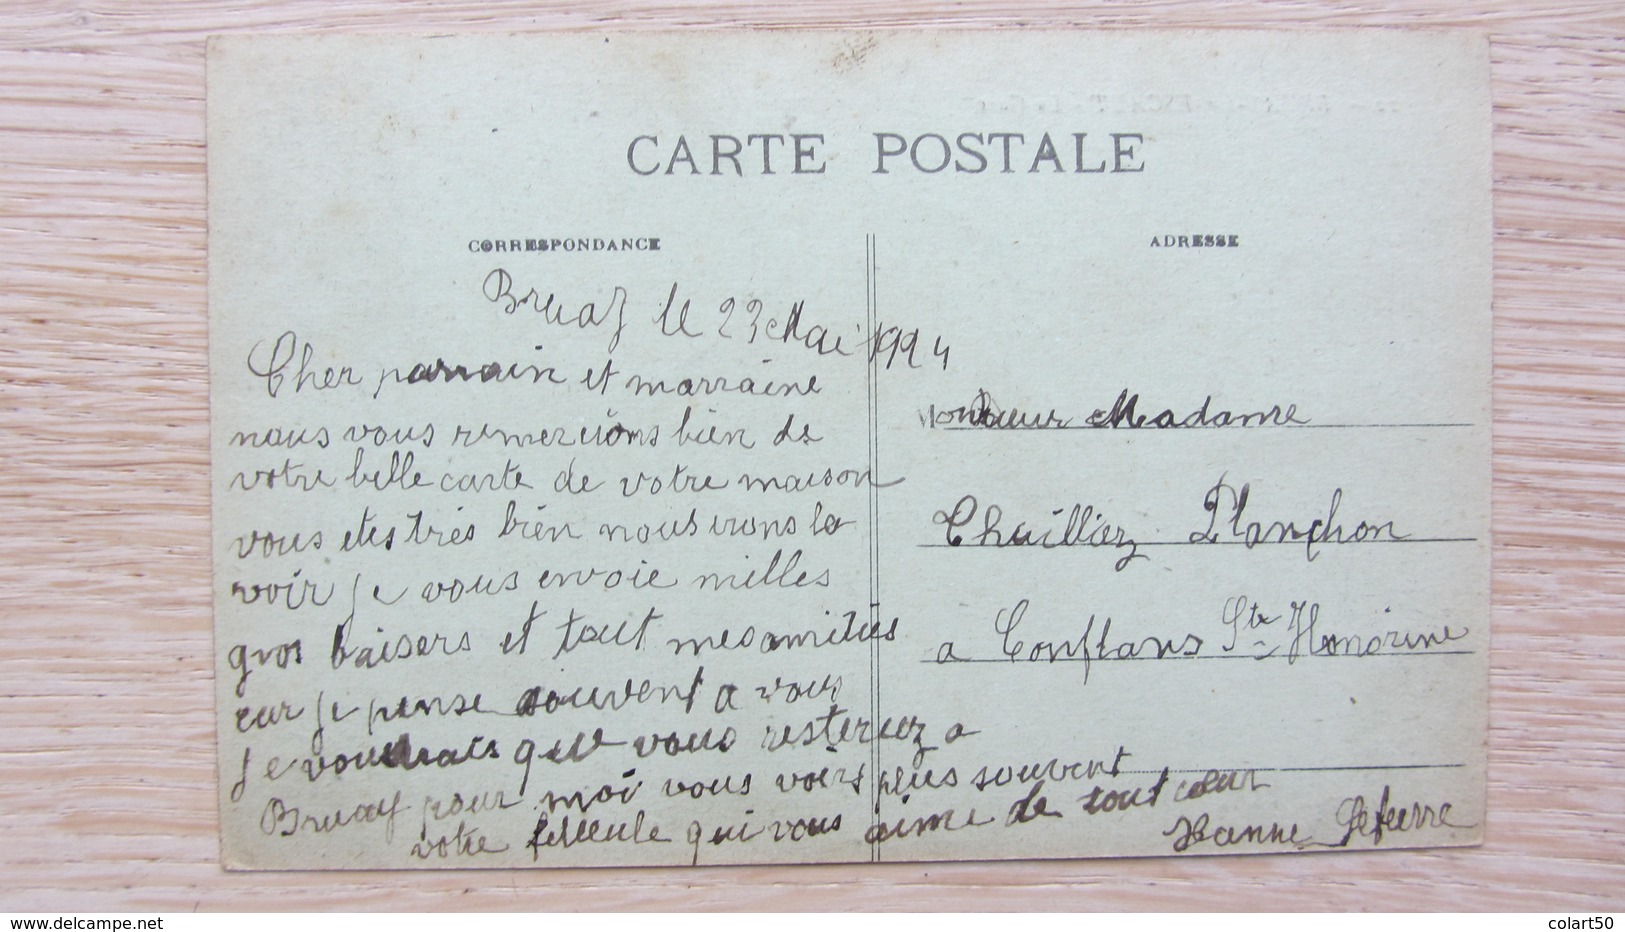 CARTE POSTALE
CORRESPONDANCE
ADRESSE
Bruay le 23 Mai 1924
Cher parrain et marraine
nous vous remerciöns bien de
votre belle carte de votre maison
vous etes très bien nous irons la
voir je vous envoie milles
gros baisers et tout mes amitiés
car je pense souvent a vous
Je voudrais que vous resteriez a
Bruay pour moi vous voirs plus souvent
votre filleule qui vous aime de tout cœur
Jeanne Lefevre
Monsieur Madame
Chailliez Planchon
a Conflans Ste Honorine
www.delcampe.net
colart50